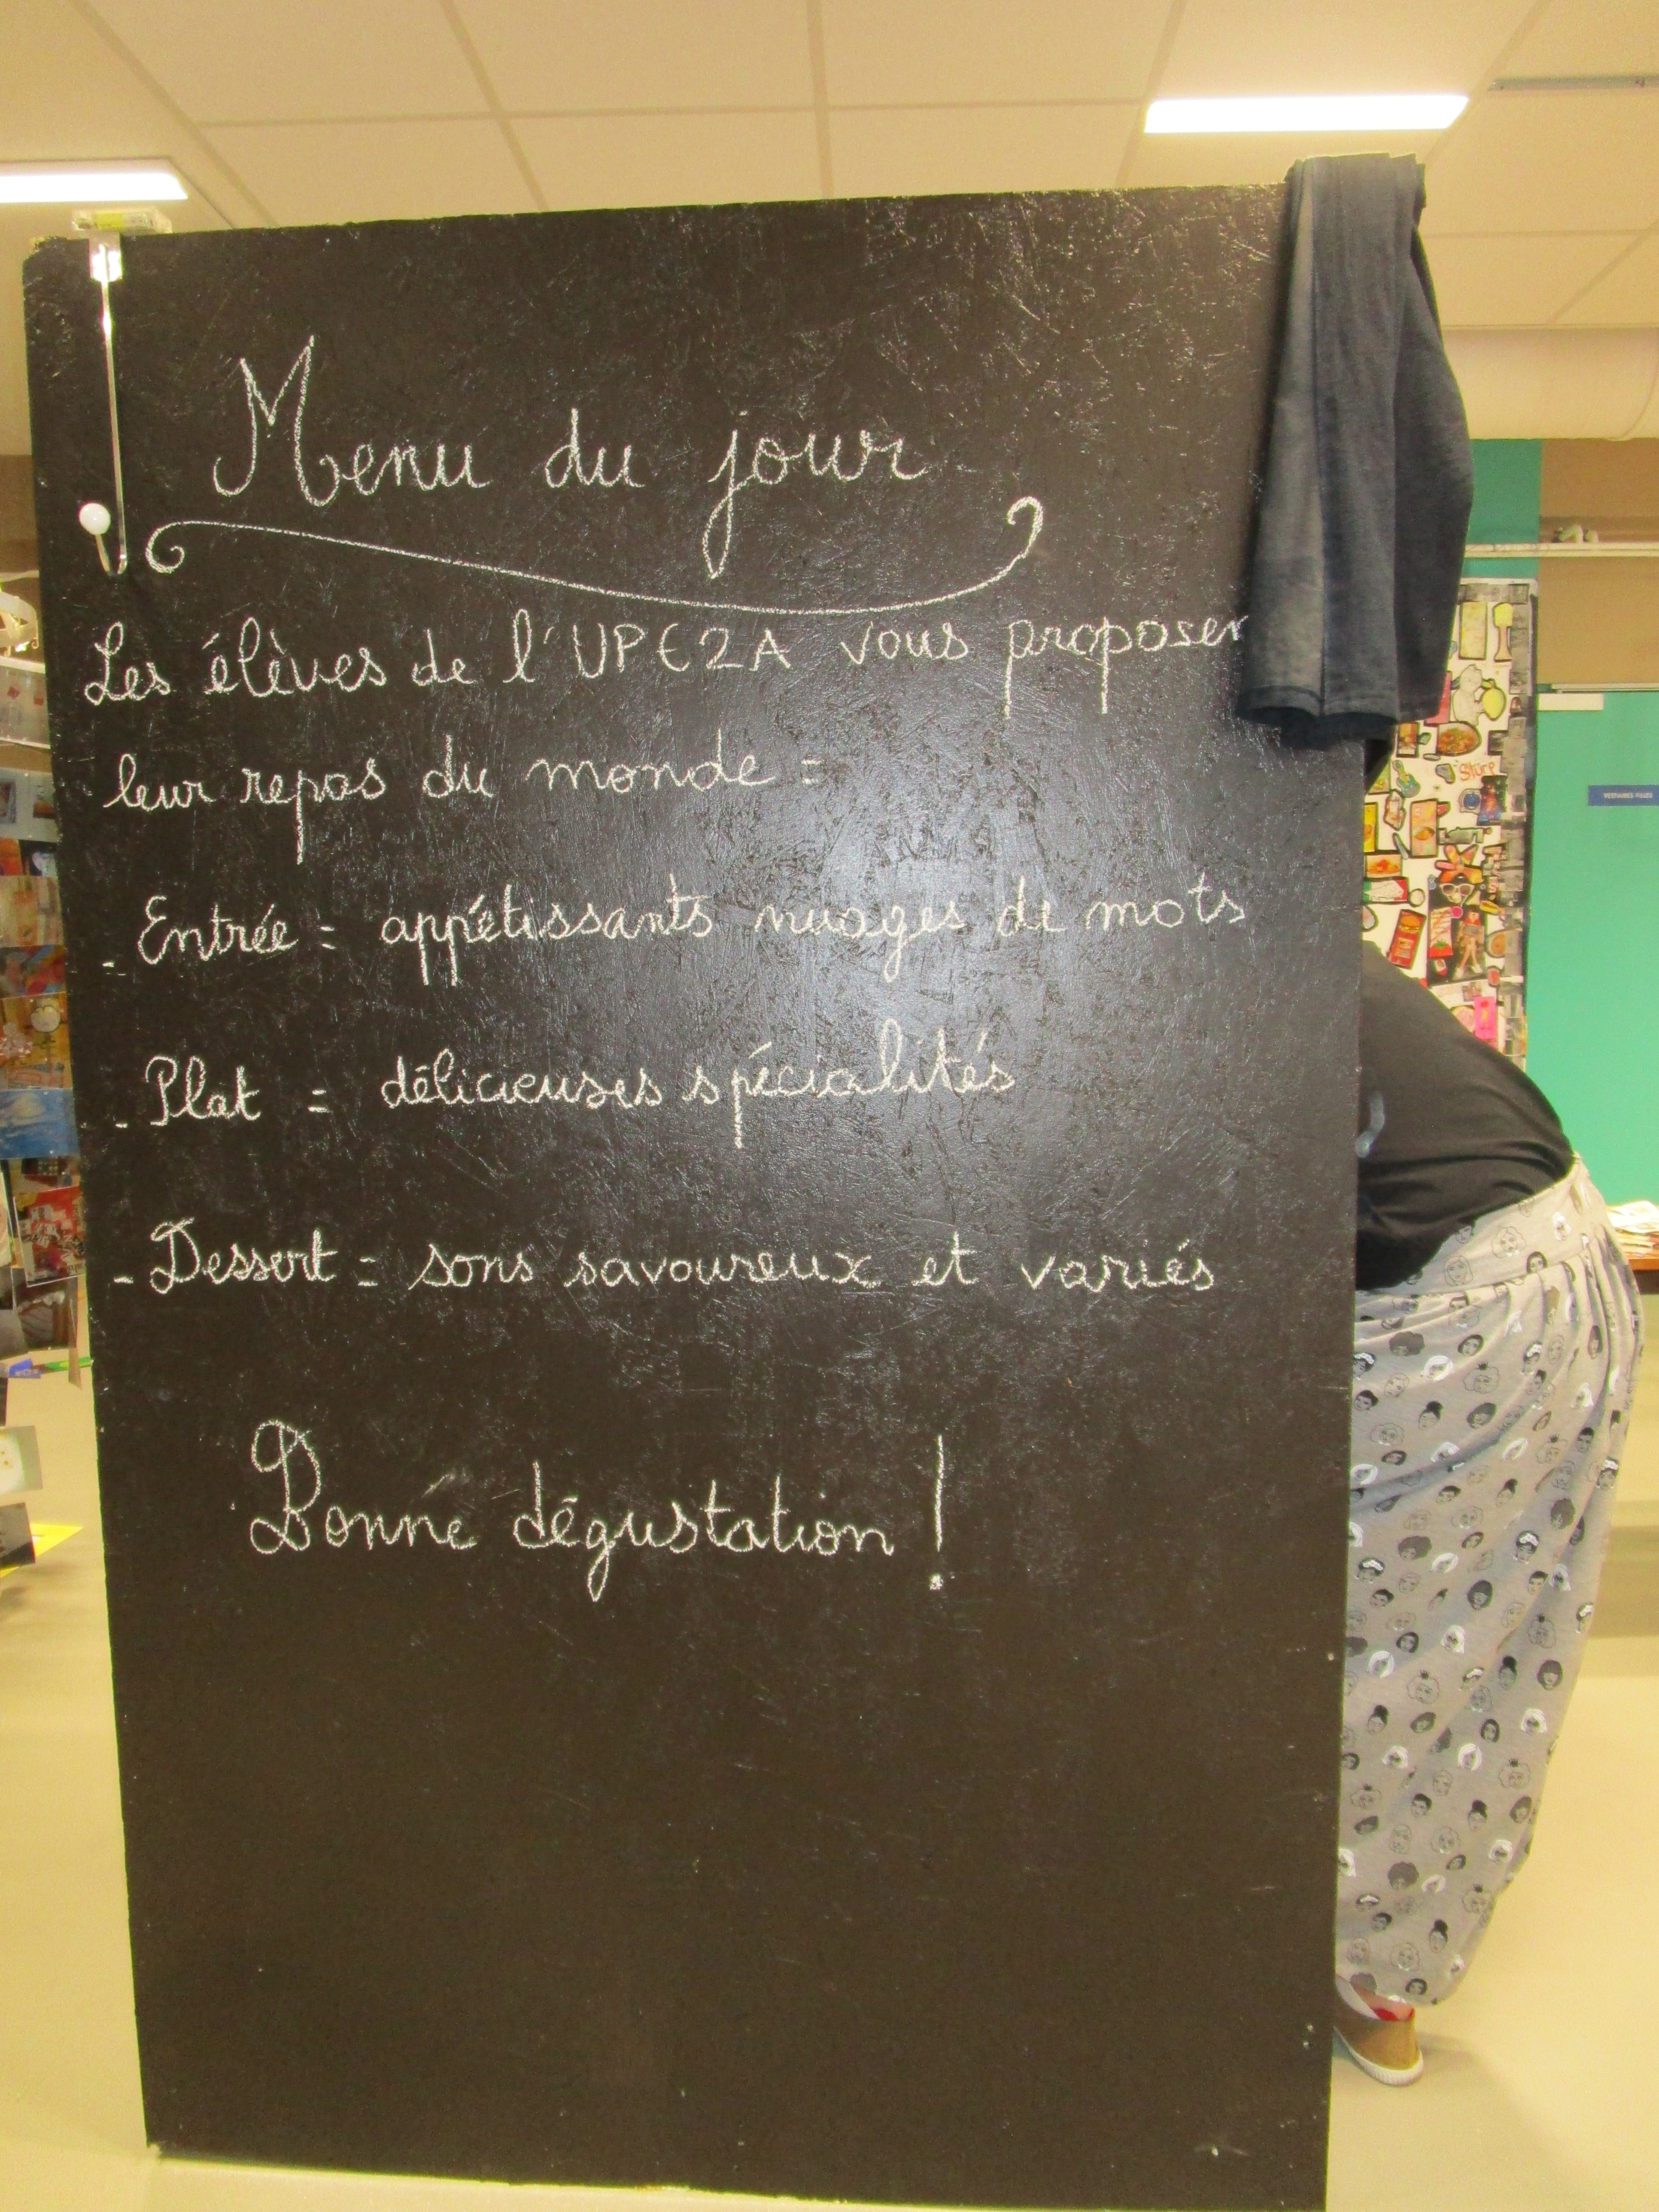 Menu du jour
Les élèves de l'UPE2A vous proposer
leur repas du monde =
- Entrée = appétissants nuages de mots
- Plat = délicieuses spécialités
- Dessert = sons savoureux et variés
Bonne dégustation !
VESTIAIRES FILLES